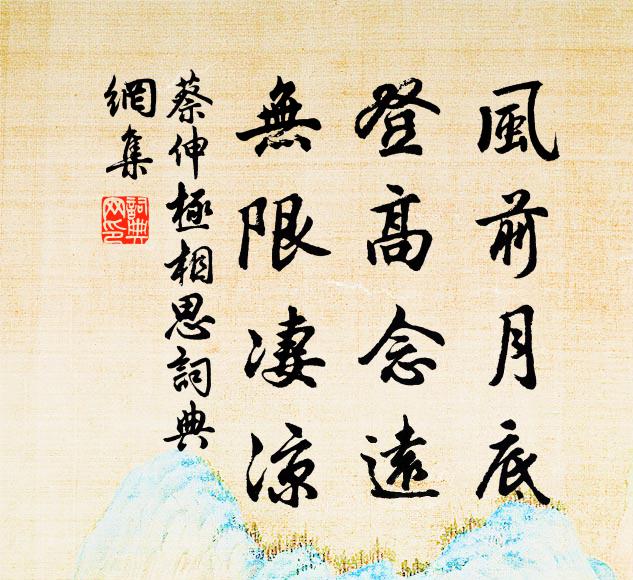 風前月底
登高念遠
無限淒涼
蔡伸極相思詞典
網集
詞典
网印